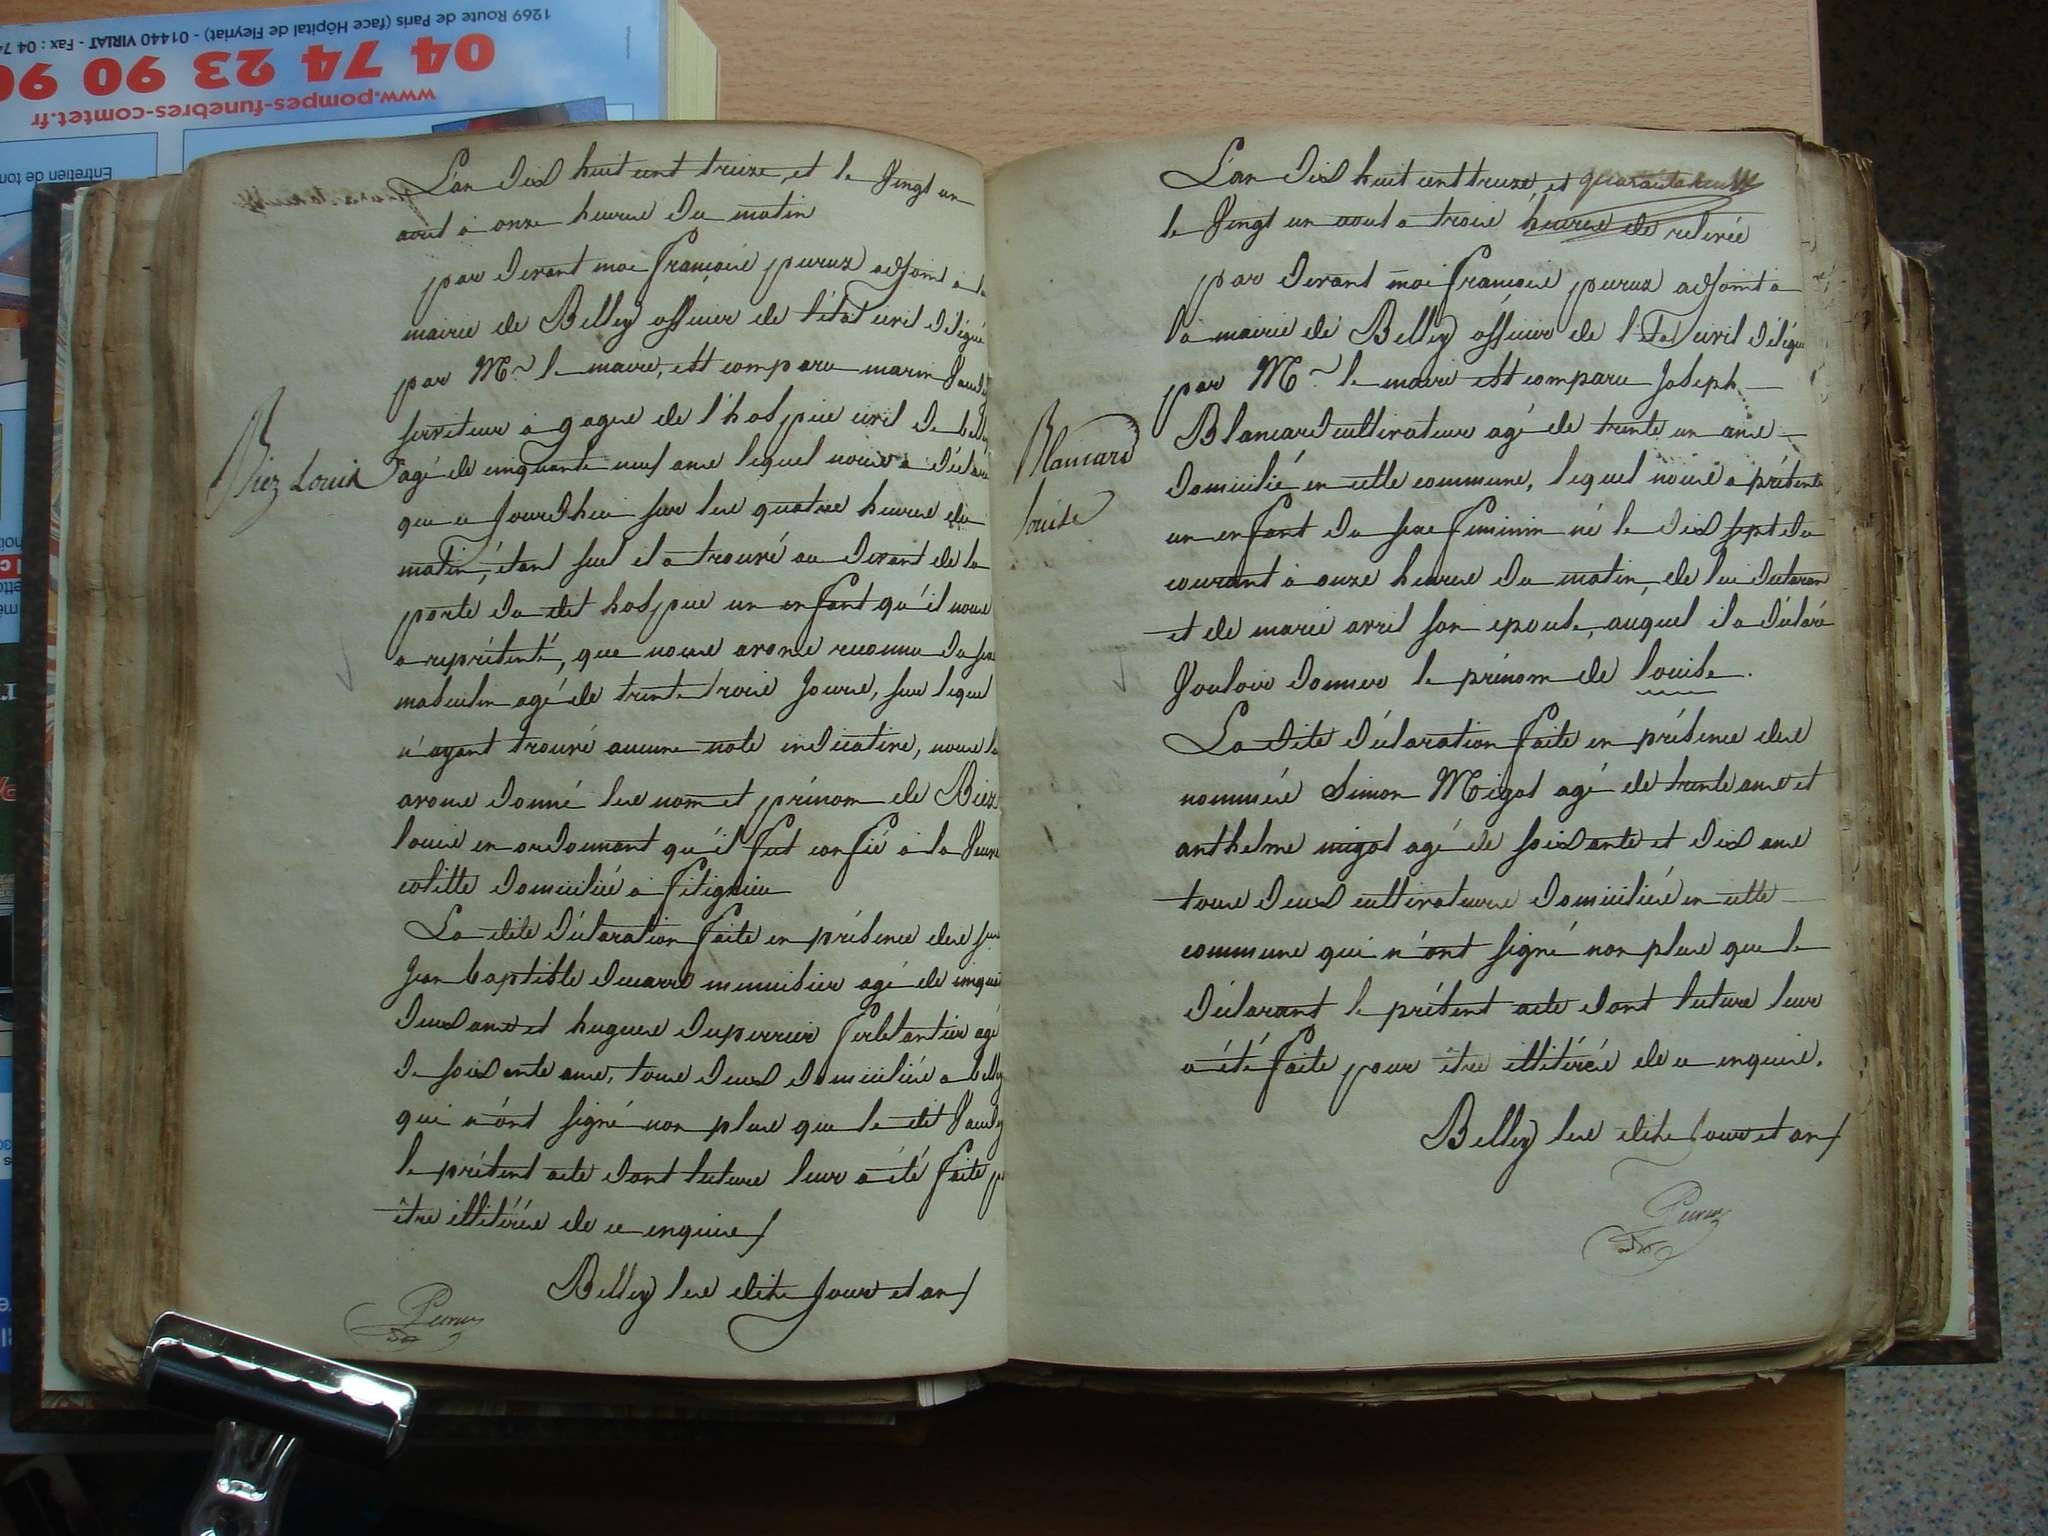 1269 Route de Paris (face Hôpital de Fleyriat) - 01440 VIRIAT - Fax : 04 74
04 74 23 90 90
www.pompes-funebres-comtet.fr
Entretien de tom
L'an dix huit cent treize, et le vingt un
aout à onze heures du matin
par devant moi françois peruz adjoint à la
mairie de Belley officier de l'état civil délégué
par Mr le maire, est comparu marin
serviteur à gages de l'hospice civil de belley
Biez Louis
agé de cinquante neuf ans lequel nous a déclaré
que ce jourdhui sur les quatre heures du
matin, étant seul il a trouvé au devant de la
porte du dit hospice un enfant qu'il nous
a représenté, que nous avons reconnu du sexe
masculin agé de trente trois jours, sur lequel
n'ayant trouvé aucune note indicative, nous lui
avons donné les nom et prénom de Biez
louis en ordonnant qu'il fut confié à la veuve
colitte domiciliée à fitignieu
La dite déclaration faite en présence des srs
jean baptiste ducarre menuisier agé de cinquante
deux ans et hugues duperrier ferblantier agé
de soixante ans, tous deux domiciliés a belley
qui n'ont signé non plus que le dit
le présent acte dont lecture leur a été faite p
être illitérés de ce enquis/
Belley les dits jour et an/
Peruz
adt
L'an dix huit cent treize, et
le vingt un aout a trois heures de relevée
par devant moi françois peruz adjoint à
la mairie de Belley officier de l'état civil délégué
par Mr le maire est comparu joseph
Blancard cultivateur agé de trente un ans
Blancard
louise
domicilié en cette commune, lequel nous a présenté
un enfant du sexe féminin né le dix sept du
courant à onze heures du matin, de lui déclarant
et de marie avril son epouse, auquel il a déclaré
vouloir donner le prénom de louise.
La dite déclaration faite en présence des
nommés Simon Migot agé de trente ans et
anthelme migot agé de soixante et dix ans
tous deux cultivateurs domiciliés en cette
commune qui n'ont signé non plus que le
déclarant le présent acte dont lecture leur
a été faite pour être illitérés de ce enquis.
Belley les dits jour et an/
Peruz
adt